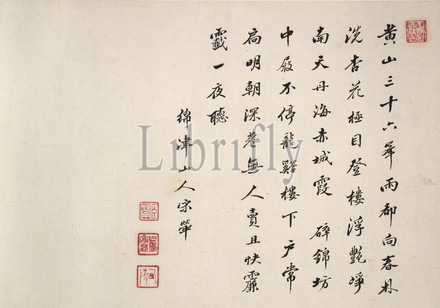 黄山三十六峯雨都向春林
洗杏花極目登樓浮艷
南天丹海赤城霞 碎錦坊
中屐不停龍谿樓下戶常
扃明朝深巷無人賣且快
一夜聽
綿津山人宋犖
Librifly